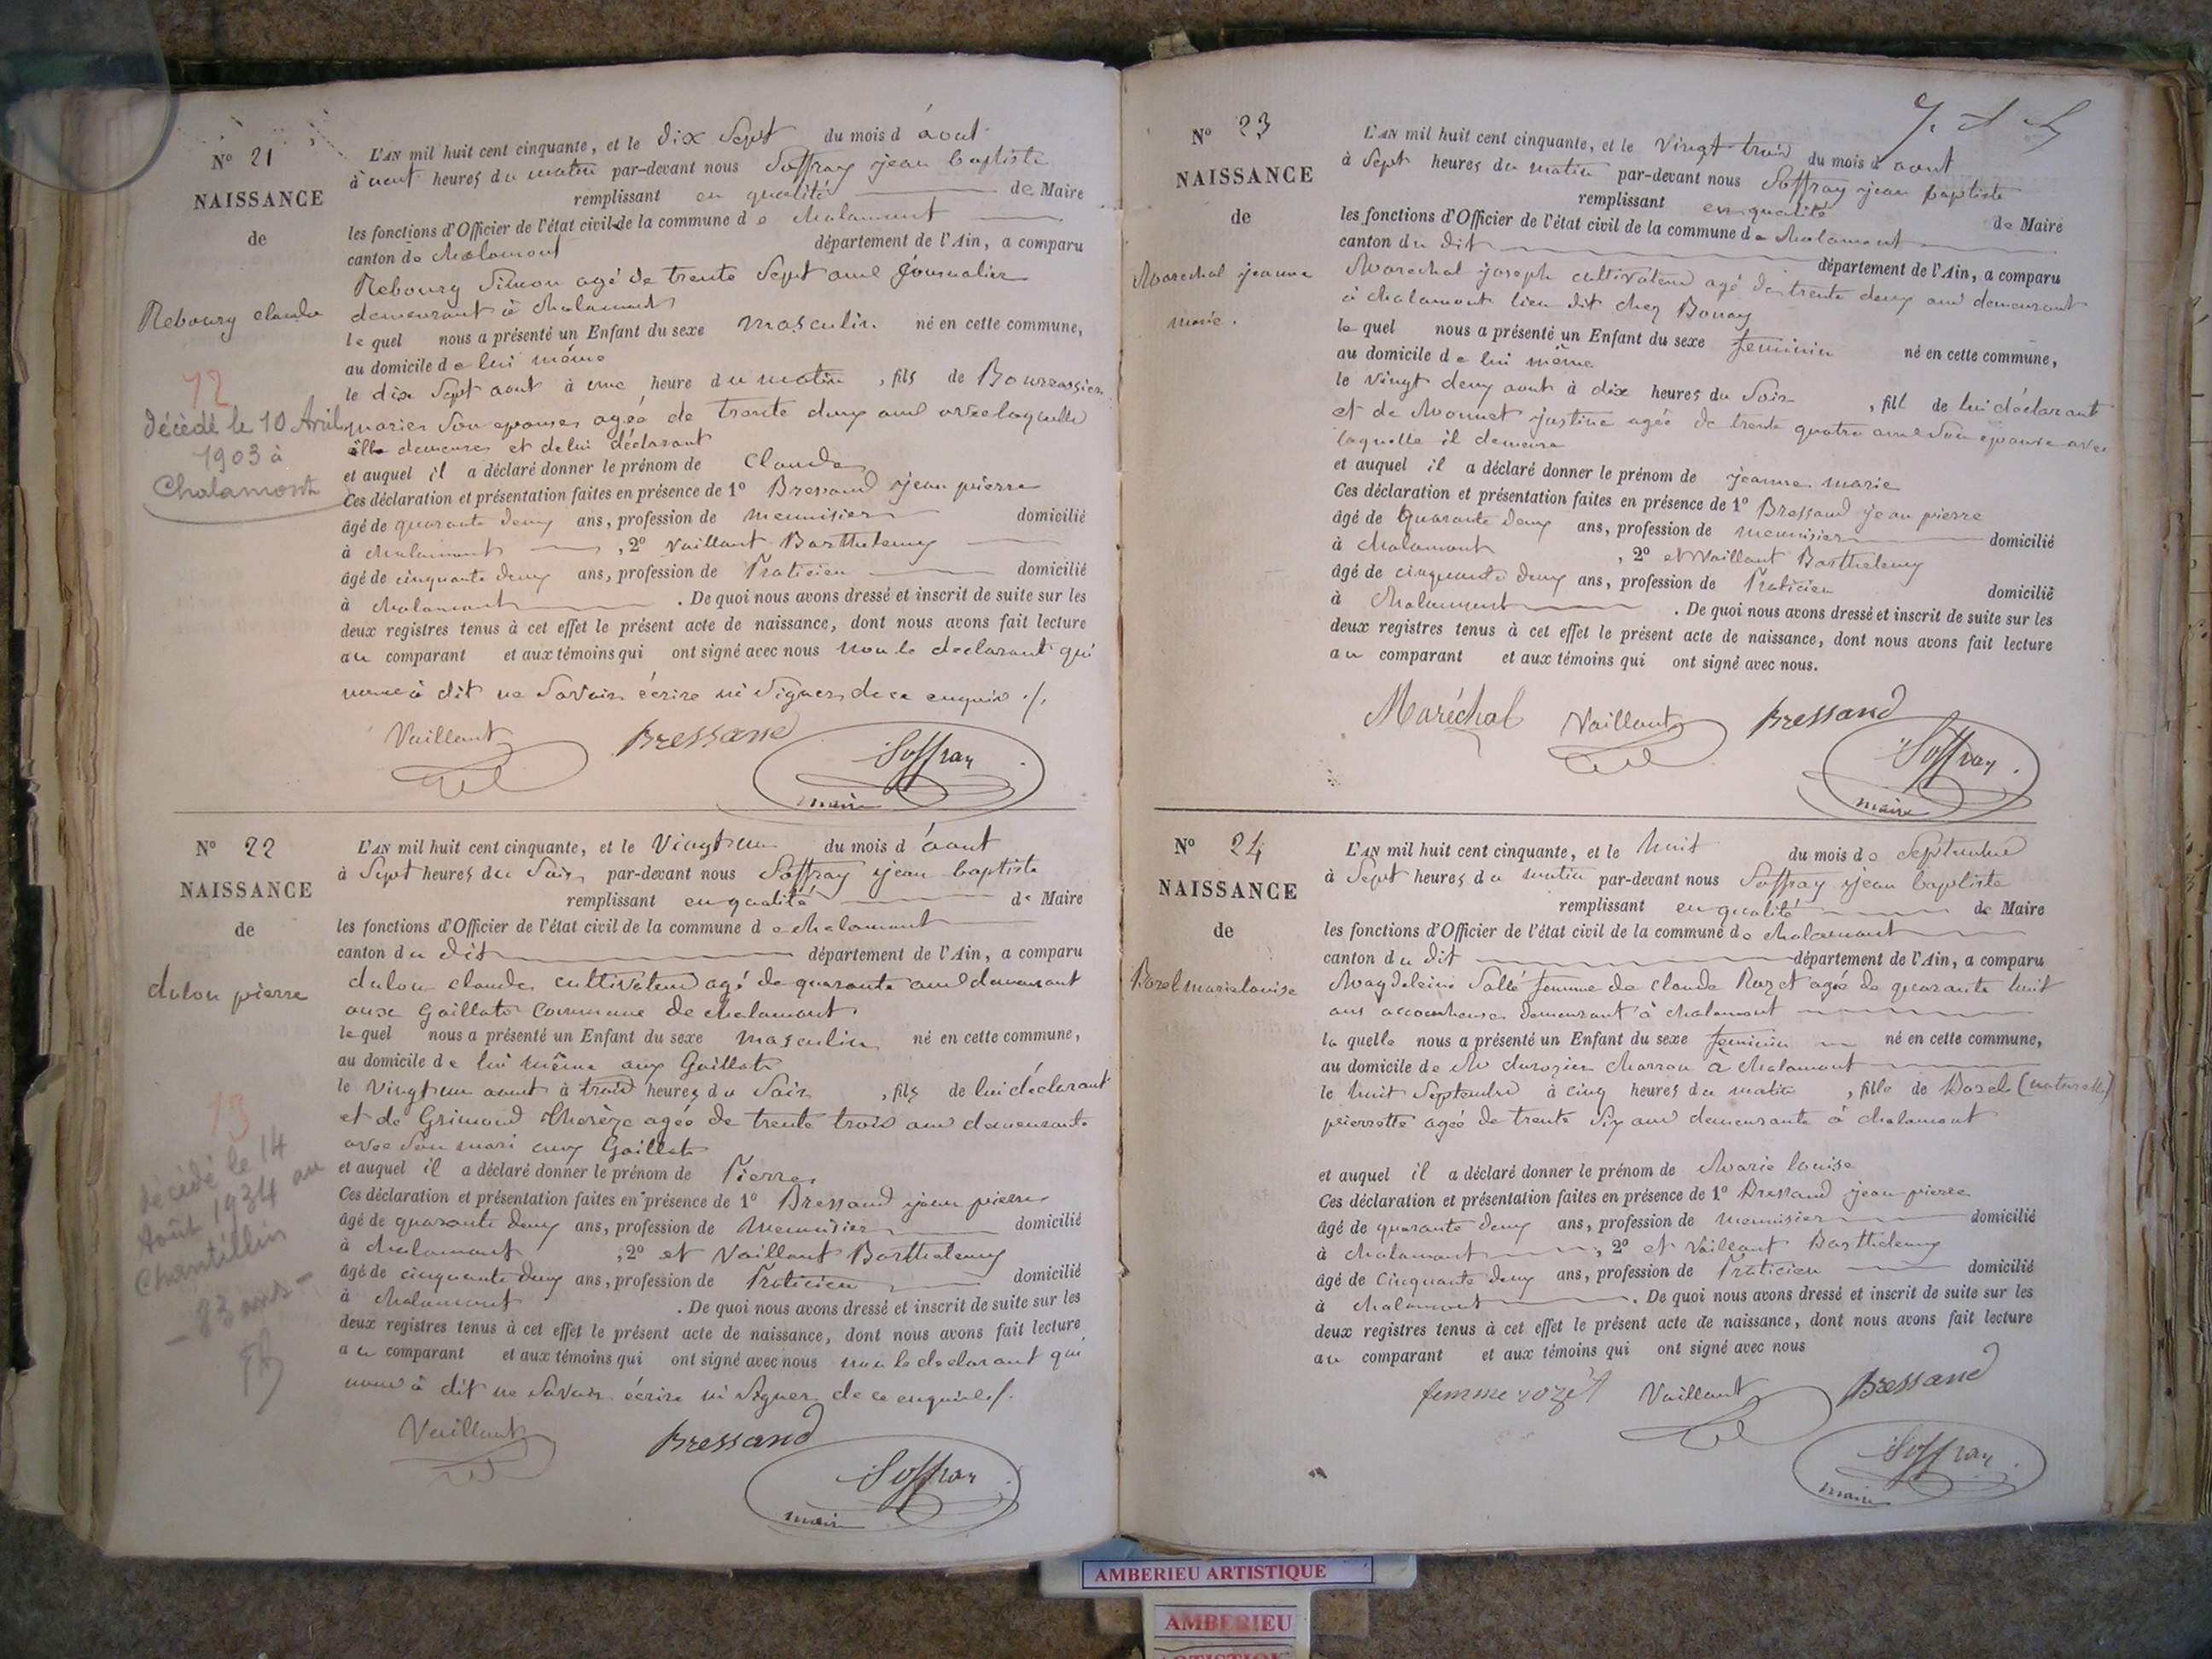 N° 21
NAISSANCE
de
Rebourg claude
12
décédé le 10 Avril
1903 à
Chalamont
L'AN mil huit cent cinquante, et le dix Sept du mois d août
à neuf heures du matin par-devant nous Soffray jean baptiste
remplissant en qualité de Maire
les fonctions d'Officier de l'état civil de la commune de chalamont
canton de chalamont département de l'Ain, a comparu
Rebourg Simon agé de trente Sept ans journalier
demeurant à chalamont
lequel nous a présenté un Enfant du sexe masculin né en cette commune,
au domicile de lui même
le dix Sept aout à une heure du matin, fils de
maries Son epouse agée de trente deux ans avec laquelle
elle demeure et de lui déclarant
et auquel il a déclaré donner le prénom de Claude
Ces déclaration et présentation faites en présence de 1° Bressand jean pierre
âgé de quarante deux ans, profession de menuisier domicilié
à chalamont, 2° Vaillant Barthelemy
âgé de cinquante deux ans, profession de Praticien domicilié
à chalamont. De quoi nous avons dressé et inscrit de suite sur les
deux registres tenus à cet effet le présent acte de naissance, dont nous avons fait lecture
au comparant et aux témoins qui ont signé avec nous non le declarant qui
nous à dit ne Savoir écrire ni Signer de ce enquis ./.
Vaillant Bressand Soffray
maire
N° 22
NAISSANCE
de
dulon pierre
13
décédé le 14
Août 1934 au
Chantillin
- 83 ans -
L'AN mil huit cent cinquante, et le Vingt un du mois d août
à Sept heures du Soir par-devant nous Soffray jean baptiste
remplissant en qualité de Maire
les fonctions d'Officier de l'état civil de la commune de chalamont
canton du dit département de l'Ain, a comparu
dulon claude cultivateur agé de quarante ans demeurant
aux Gaillats Commune de chalamont
lequel nous a présenté un Enfant du sexe masculin né en cette commune,
au domicile de lui même aux Gaillats
le Vingt un aout à trois heures du Soir, fils de lui déclarant
et de Grimond therèze agée de trente trois ans demeurante
avec Son mari aux Gaillats
et auquel il a déclaré donner le prénom de Pierre
Ces déclaration et présentation faites en présence de 1° Bressand jean pierre
âgé de quarante deux ans, profession de Menuisier domicilié
à chalamont, 2° et Vaillant Barthelemy
âgé de cinquante deux ans, profession de Praticien domicilié
à chalamont. De quoi nous avons dressé et inscrit de suite sur les
deux registres tenus à cet effet le présent acte de naissance, dont nous avons fait lecture
au comparant et aux témoins qui ont signé avec nous non le declarant qui
nous à dit ne Savoir écrire ni Signer de ce enquis ./.
Vaillant Bressand Soffray
maire
N° 23
NAISSANCE
de
Marechal jeanne
marie.
L'AN mil huit cent cinquante, et le Vingt trois du mois d aout
à Sept heures du matin par-devant nous Soffray jean baptiste
remplissant en qualité de Maire
les fonctions d'Officier de l'état civil de la commune de chalamont
canton du dit département de l'Ain, a comparu
Marechal joseph cultivateur agé de trente deux ans demeurant
à chalamont lieu dit chez Bonay
lequel nous a présenté un Enfant du sexe feminin né en cette commune,
au domicile de lui même
le Vingt deux aout à dix heures du Soir, fill de lui déclarant
et de Monnet justine agée de trente quatre ans Son epouse avec
laquelle il demeure
et auquel il a déclaré donner le prénom de jeanne marie
Ces déclaration et présentation faites en présence de 1° Bressand jean pierre
âgé de quarante deux ans, profession de menuisier domicilié
à chalamont, 2° et Vaillant Barthelemy
âgé de cinquante deux ans, profession de Praticien domicilié
à chalamont. De quoi nous avons dressé et inscrit de suite sur les
deux registres tenus à cet effet le présent acte de naissance, dont nous avons fait lecture
au comparant et aux témoins qui ont signé avec nous.
Maréchal Vaillant Bressand
Soffray
maire
N° 24
NAISSANCE
de
marie louise
L'AN mil huit cent cinquante, et le huit du mois de Septembre
à Sept heures du matin par-devant nous Soffray jean baptiste
remplissant en qualité de Maire
les fonctions d'Officier de l'état civil de la commune de chalamont
canton du dit département de l'Ain, a comparu
Magdeleine Sallé femme de claude Rozet agée de quarante huit
ans accoucheuse demeurant à chalamont
la quelle nous a présenté un Enfant du sexe feminin né en cette commune,
au domicile de charron à chalamont
le huit Septembre à cinq heures du matin, fille de (naturelle)
pierrette agée de trente Six ans demeurante à chalamont
et auquel il a déclaré donner le prénom de Marie louise
Ces déclaration et présentation faites en présence de 1° Bressand jean pierre
âgé de quarante deux ans, profession de menuisier domicilié
à chalamont, 2° et Vaillant Barthelemy
âgé de Cinquante deux ans, profession de Praticien domicilié
à chalamont. De quoi nous avons dressé et inscrit de suite sur les
deux registres tenus à cet effet le présent acte de naissance, dont nous avons fait lecture
au comparant et aux témoins qui ont signé avec nous
femme rozet Vaillant Bressand
Soffray
maire
AMBERIEU ARTISTIQUE
AMBERIEU
ARTISTIQUE